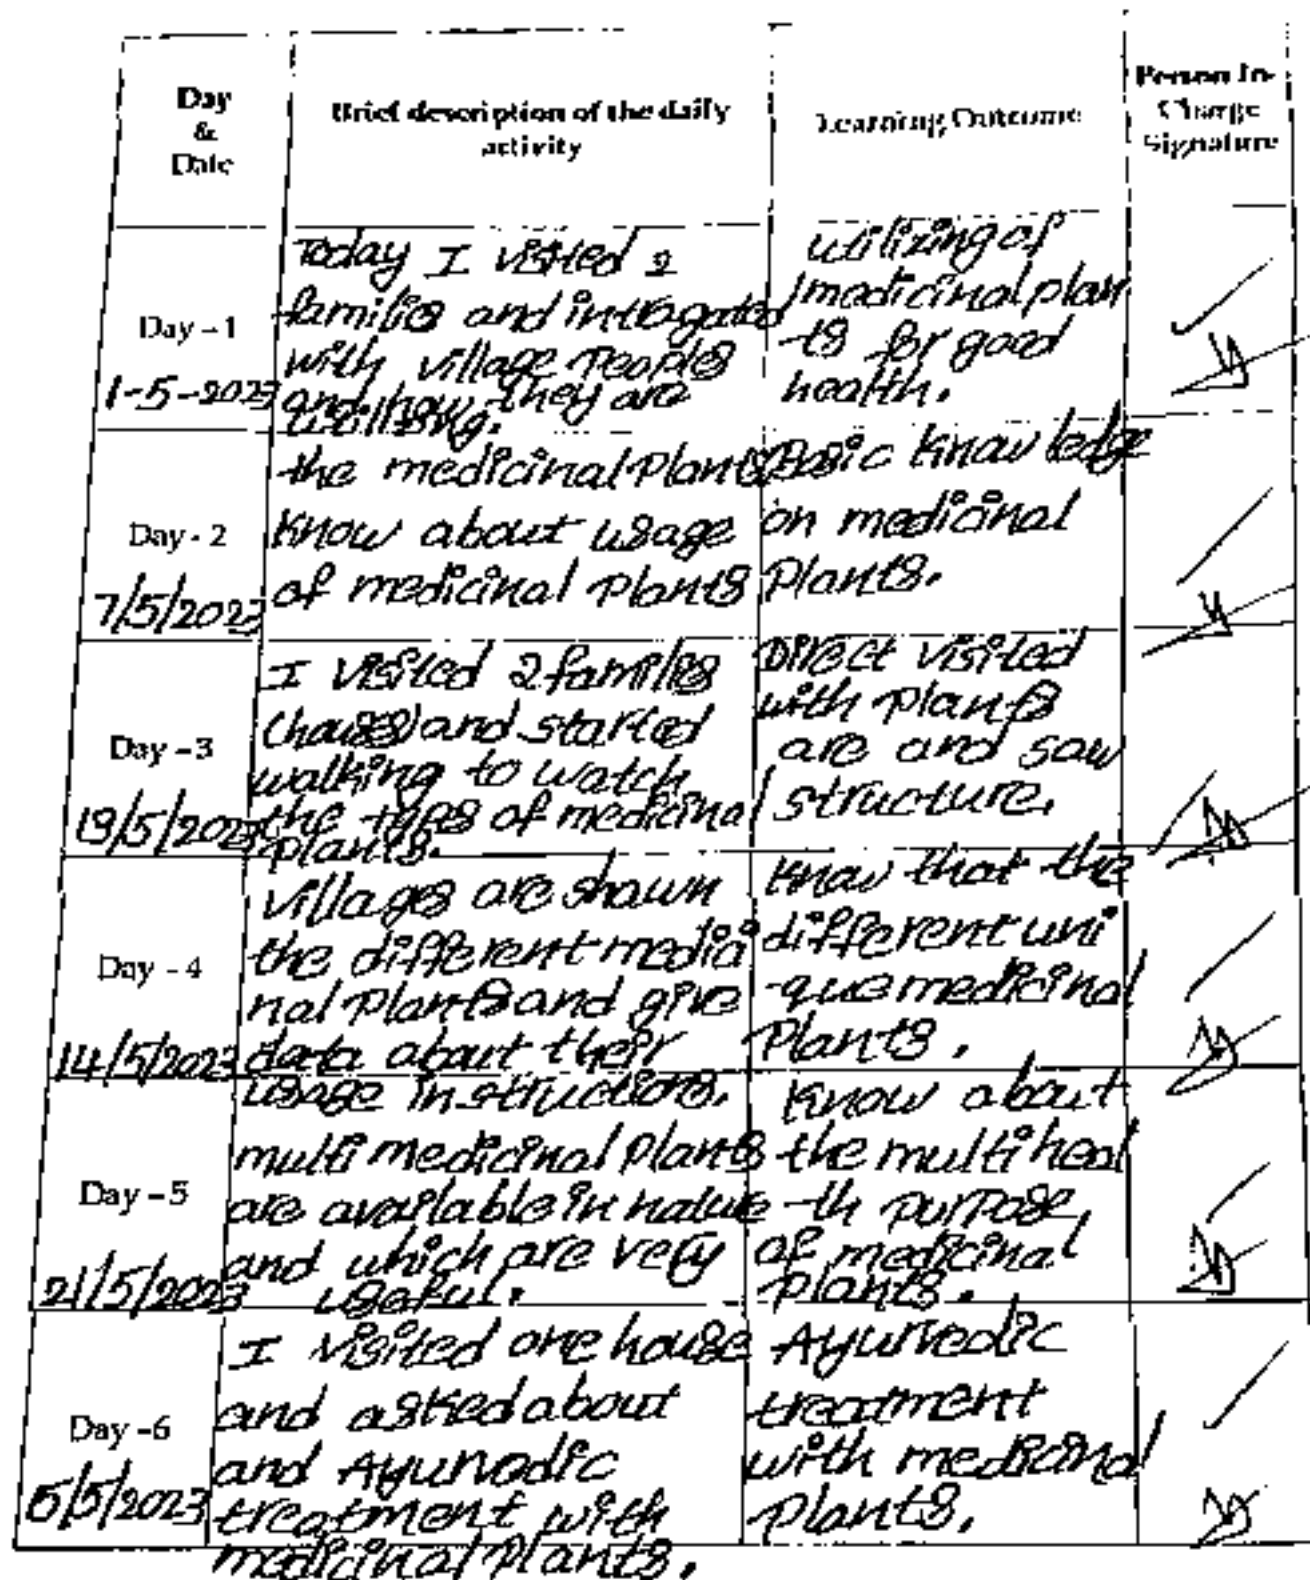 Day
&
Date
Brief description of the daily
activity
Learning Outcome
Person In-
Charge
Signature
Day - 1
1-5-2023
Today I visited 2
families and introgated
with village peoples
and how they are
utilizing of
medicinal plan
-ts for good
health.
Day - 2
7/5/2023
the medicinal plants
know about usage
of medicinal plants
Basic knowledge
on medicinal
plants.
Day - 3
I visited 2 families
(houses) and started
walking to watch
the types of medicinal
plants.
Direct visited
with plants
are and saw
structure.
Day - 4
14/5/2023
villages are shown
the different medici
nal plants and give
data about their
usage instructions.
know that the
different uni
-que medicinal
plants.
Day - 5
21/5/2023
multi medicinal plants
are available in nature
and which are very
useful.
know about
the multi heal
-th purpose
of medicinal
plants.
Day - 6
5/5/2023
I visited one house
and asked about
and Ayurvedic
treatment with
medicinal plants.
Ayurvedic
treatment
with medicinal
plants.